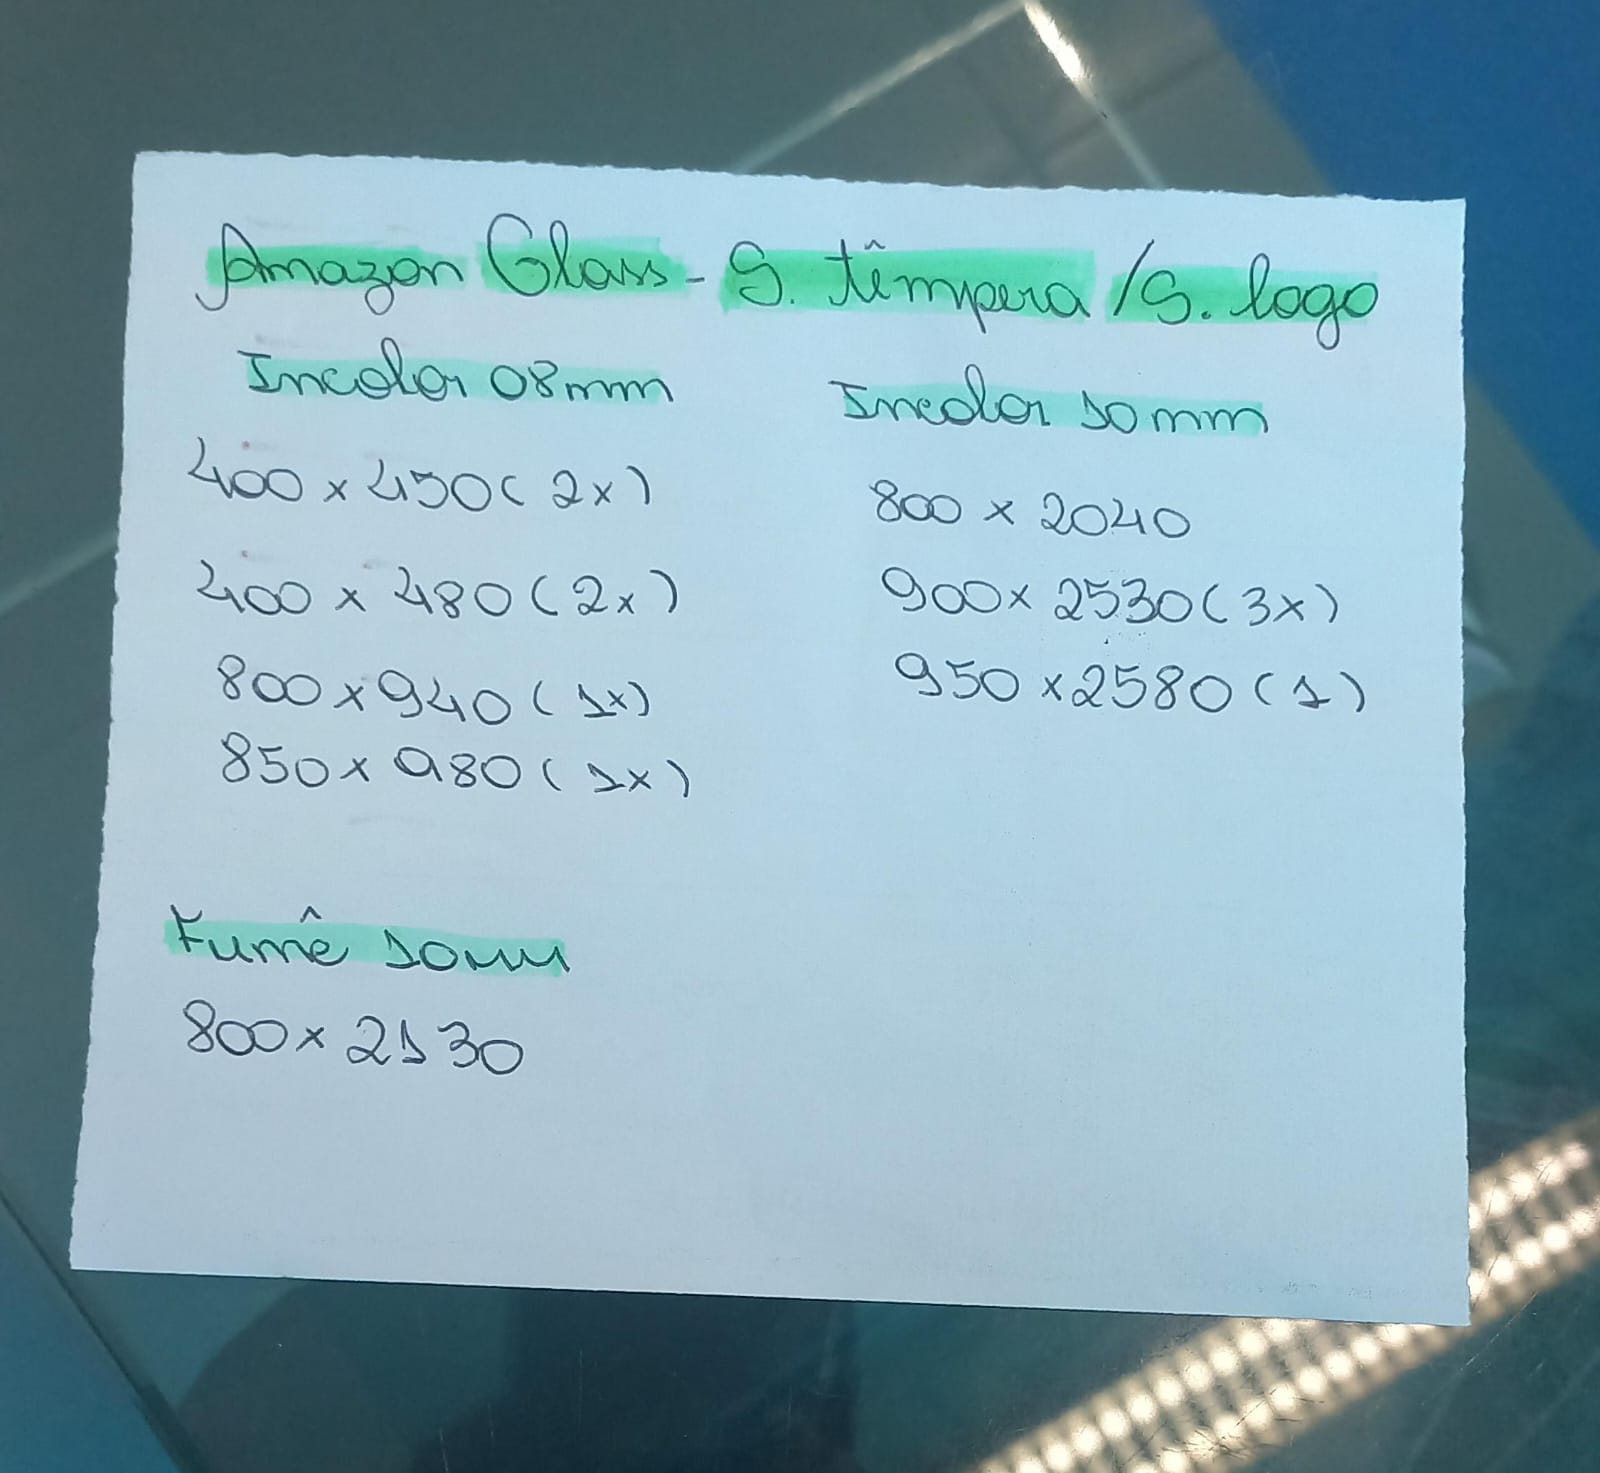 Amazon Glass - S. têmpera / S. logo
Incolor 08mm
400 x 450 (2x)
400 x 480 (2x)
800 x 940 (1x)
850 x 980 (1x)
Incolor 10mm
800 x 2040
900 x 2530 (3x)
950 x 2580 (1)
Fumê 10mm
800 x 2130